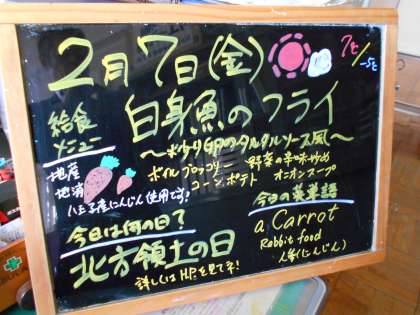 2月7日(金)
7℃/-5℃
給食
メニュー
白身魚のフライ
～炒り卵のタルタルソース風～
ボイルブロッコリー 野菜の辛味炒め
コーンポテト オニオンスープ
地産
地消
八王子産にんじん使用です!
今日は何の日?
北方領土の日
詳しくはH.P.を見てネ!
今日の英単語
a Carrot
Rabbit food
人参(にんじん)